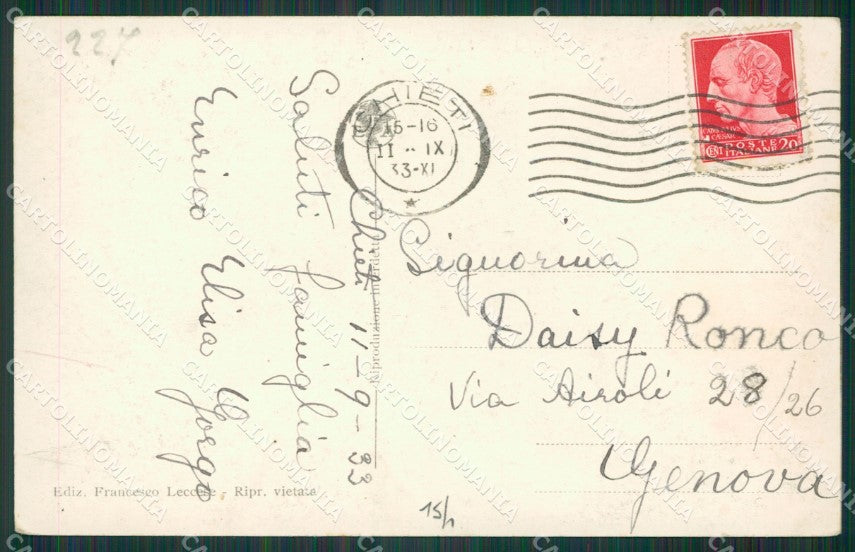 227
Chieti 11-9-33
Saluti famiglia
Enrico Elisa Gorgo
CHIETI
15-16
11 - IX
33-XI
CAIO GIULIO
CAESAR
POSTE
CENT ITALIANE 20
Signorina
Daisy Ronco
Via Airoli 28/26
Genova
Riproduzione interdetta
Ediz. Francesco Leccese - Ripr. vietata
15/1
CARTOLINOMANIA